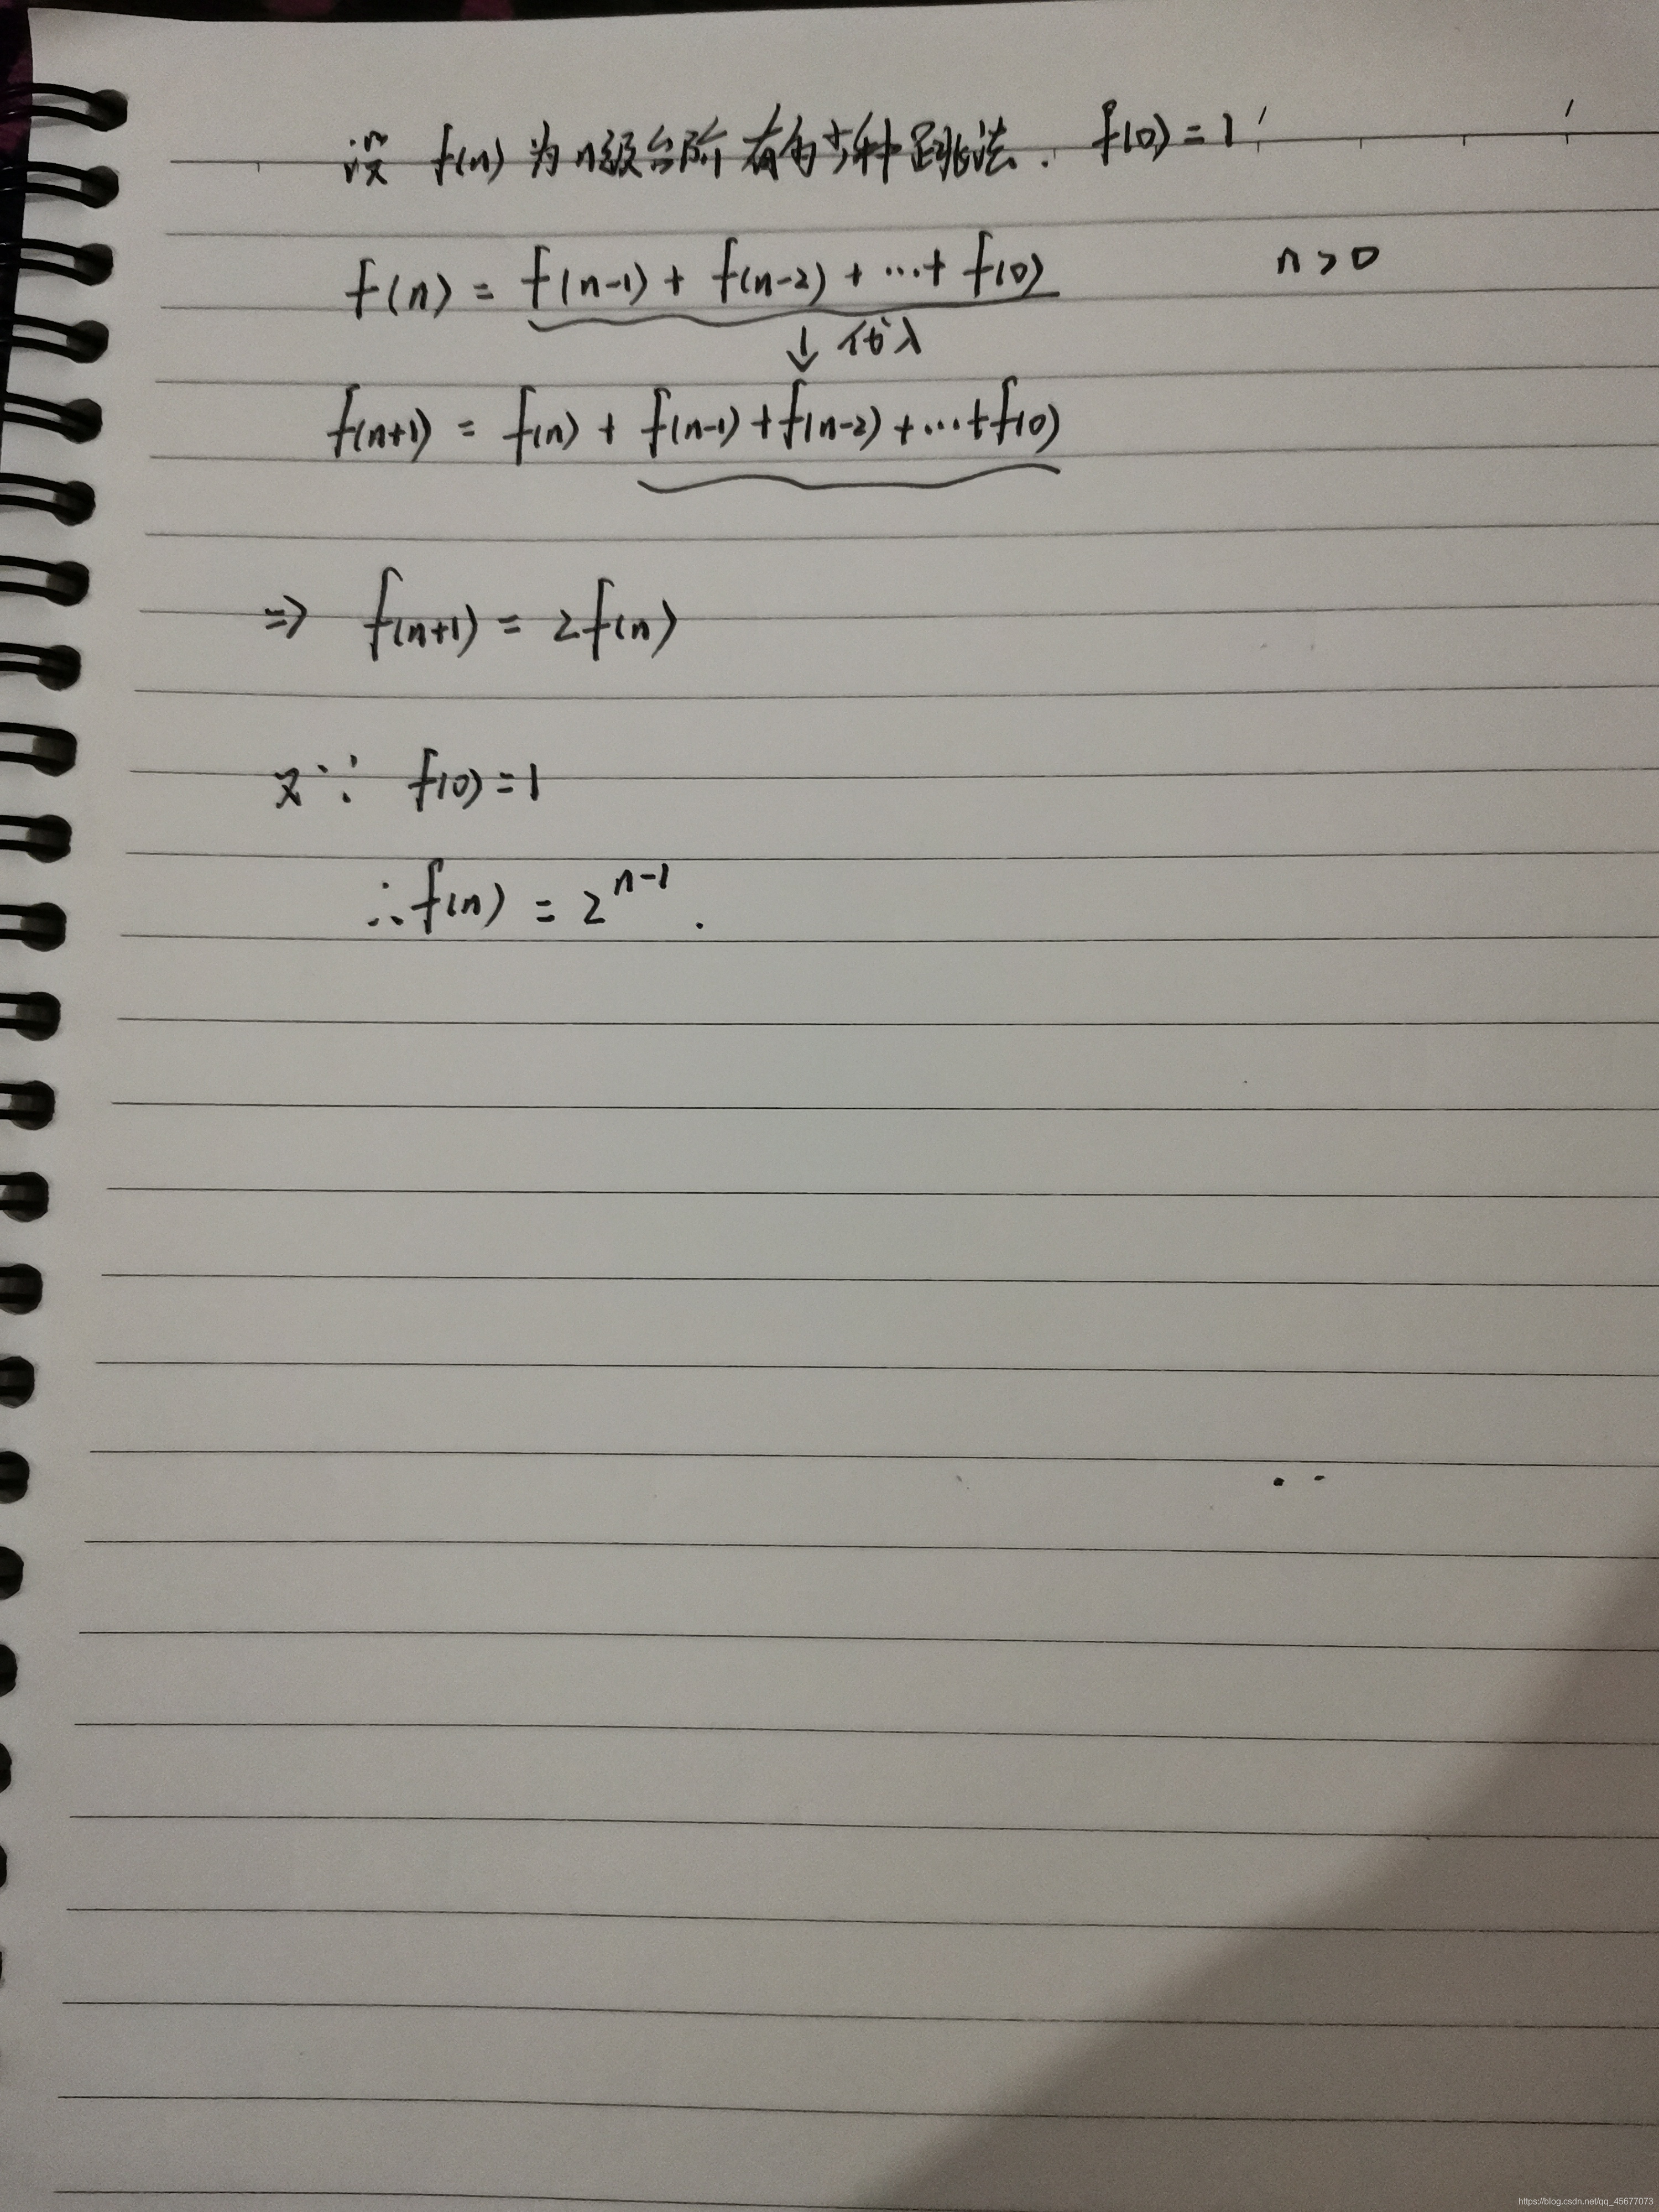 设 f(n) 为 n级台阶有多少种跳法. f(0) = 1
f(n) = f(n-1) + f(n-2) + ... + f(0) n > 0
↓ 代入
f(n+1) = f(n) + f(n-1) + f(n-2) + ... + f(0)
⇒ f(n+1) = 2f(n)
又∵ f(0) = 1
∴ f(n) = 2^{n-1}.
https://blog.csdn.net/qq_45677073